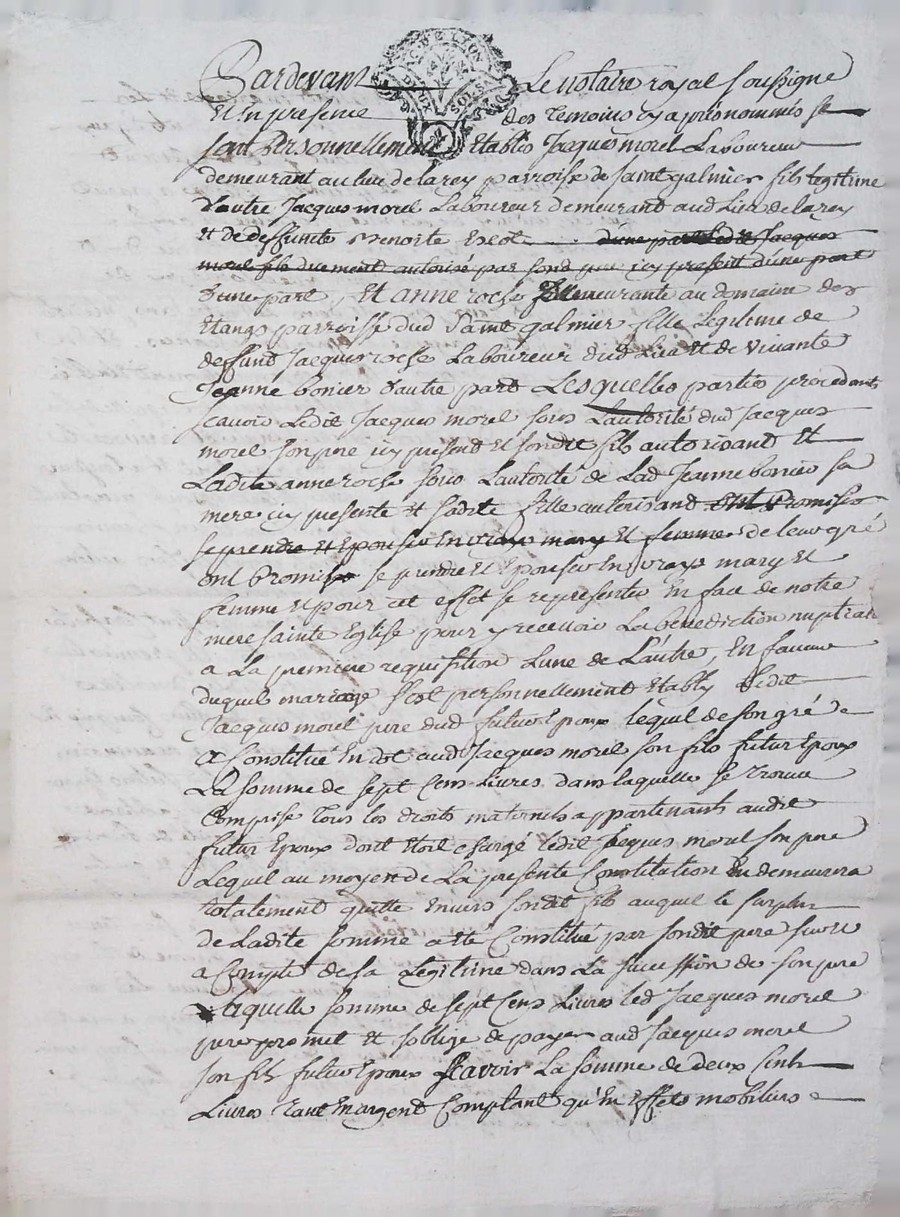 Pardevant Le notaire royal soussigné
Et En presence des Temoins cy apres nommés se
sont Personnellement Etablis Jacques morel Laboureur
demeurant au lieu de la rey parroisse de saint galmier fils legitime
d'autre Jacques morel Laboureur demeurant aud Lieu de la rey
et de deffunte Benoite d'une part ledit Jacques
morel fils duement autorisé par sond pere icy present d'une part
d'une part, Et anne roche demeurante au domaine des
Etangs parroisse dud saint galmier fille Legitime de
deffunt Jacques roche Laboureur dud Lieu et de vivante
Jeanne bonier d'autre part Lesquelles parties procedant
scavoir Ledit Jacques morel sous L'autorité dud Jacques
morel son pere icy present et sondit fils autorisant Et
Ladite anne roche sous L'autorité de Lad Jeanne bonier sa
mere icy presente et sadite fille autorisant ont Promis
se prendre et Epouser En vrays mary et femme de leur gré
ont Promis se prendre Et Epouser En vrays mary Et
femme Et pour cet effet se representer En face de notre
mere sainte Eglise pour y recevoir La benediction nuptiale
a La premiere requisition L'une de L'autre, En faveur
duquel mariage s'est personnellement Etably Ledit
Jacques morel pere dud futur Epoux lequel de son gré
a Constitué En dot aud Jacques morel son fils futur Epoux
La somme de sept Cens Livres dans laquelle se trouve
Comprise Tous les droits maternels appartenants audit
futur Epoux dont Etoit chargé ledit Jacques morel son pere
Lequel au moyen de La presente Constitution En demeurera
totalement quitte Envers sondit fils auquel le surplus
de Ladite somme a été Constitué par sondit pere
a Compte de sa Legitime dans La succession de son pere
Laquelle somme de sept Cens Livres led Jacques morel
pere promet et s'oblige de payer aud Jacques morel
son fils futur Epoux scavoir La somme de deux Cents
Livres tant En argent Comptant qu'En Effets mobiliers